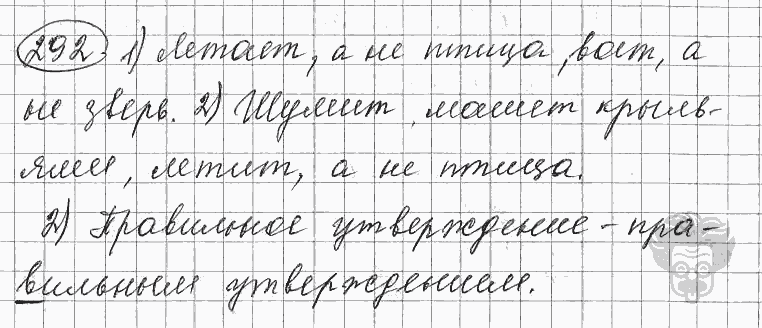 292. 1) Летает, а не птица, воет, а
не зверь. 2) Шумит, машет крыль-
ями, летит, а не птица.
2) Правильное утверждение – пра-
вильным утверждением.